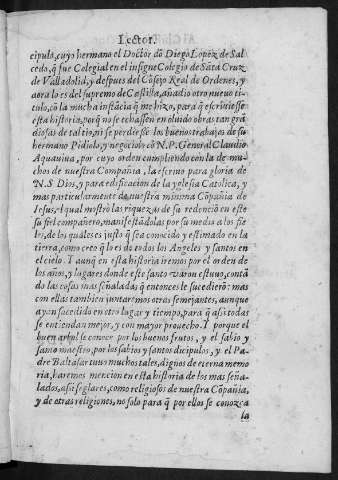 Lector.
cipulo, cuyo hermano el Doctor dõ Diego Lopez de Sal
cedo, q̃ fue Colegial en el insigne Colegio de Sãta Cruz
de Valladolid, y despues del Cõsejo Real de Ordenes, y
aora lo es del supremo de Castilla, añadio otro nueuo ti-
tulo, cõ la mucha instãcia q̃ me hizo, para q̃ escriuiesse
esta historia, porq̃ no se echassen en oluido obras tan grã
diosas de tal tio, ni se perdiesse los buenos trabajos de su
hermano. Pidiolo, y negociolo cõ N.P. General Claudio
Aquauiua, por cuyo orden cumpliendo con la de mu-
chos de nuestra Compañia, la escriuo para gloria de
N.S Dios, y para edificacion de la yglesia Catolica, y
mas particularmẽte de nuestra minima Cõpañia de
Iesus, A qual mostrò las riquezas de su redenciõ en este
su fiel compañero, manifestãdolas por su medio a los fie
les, de los quales es justo q̃ sea conocido y estimado en la
tierra, como creo q̃ lo es de todos los Angeles y santos en
el cielo. Y aunq̃ en esta historia iremos por el orden de
los años, y lugares donde este santo varon estuuo, contã
do las cosas mas señaladas q̃ entonces le sucedierõ: mas
con ellas tambien juntaremos otras semejantes, aunque
ayan sucedido en otro lugar y tiempo, para q̃ assi todas
se entiendan mejor, y con mayor prouecho. Y porque el
buen arbol se conoce por los buenos frutos, y el sabio y
santo maestro, por los sabios y santos dicipulos, y el Pa-
dre Baltasar tuuo muchos tales, dignos de eterna memo
ria, haremos mencion en esta historia de los mas seña-
lados, assi seglares, como religiosos de nuestra Cõpañia,
y de otras religiones, no solo para q̃ por ellos se conozca
la